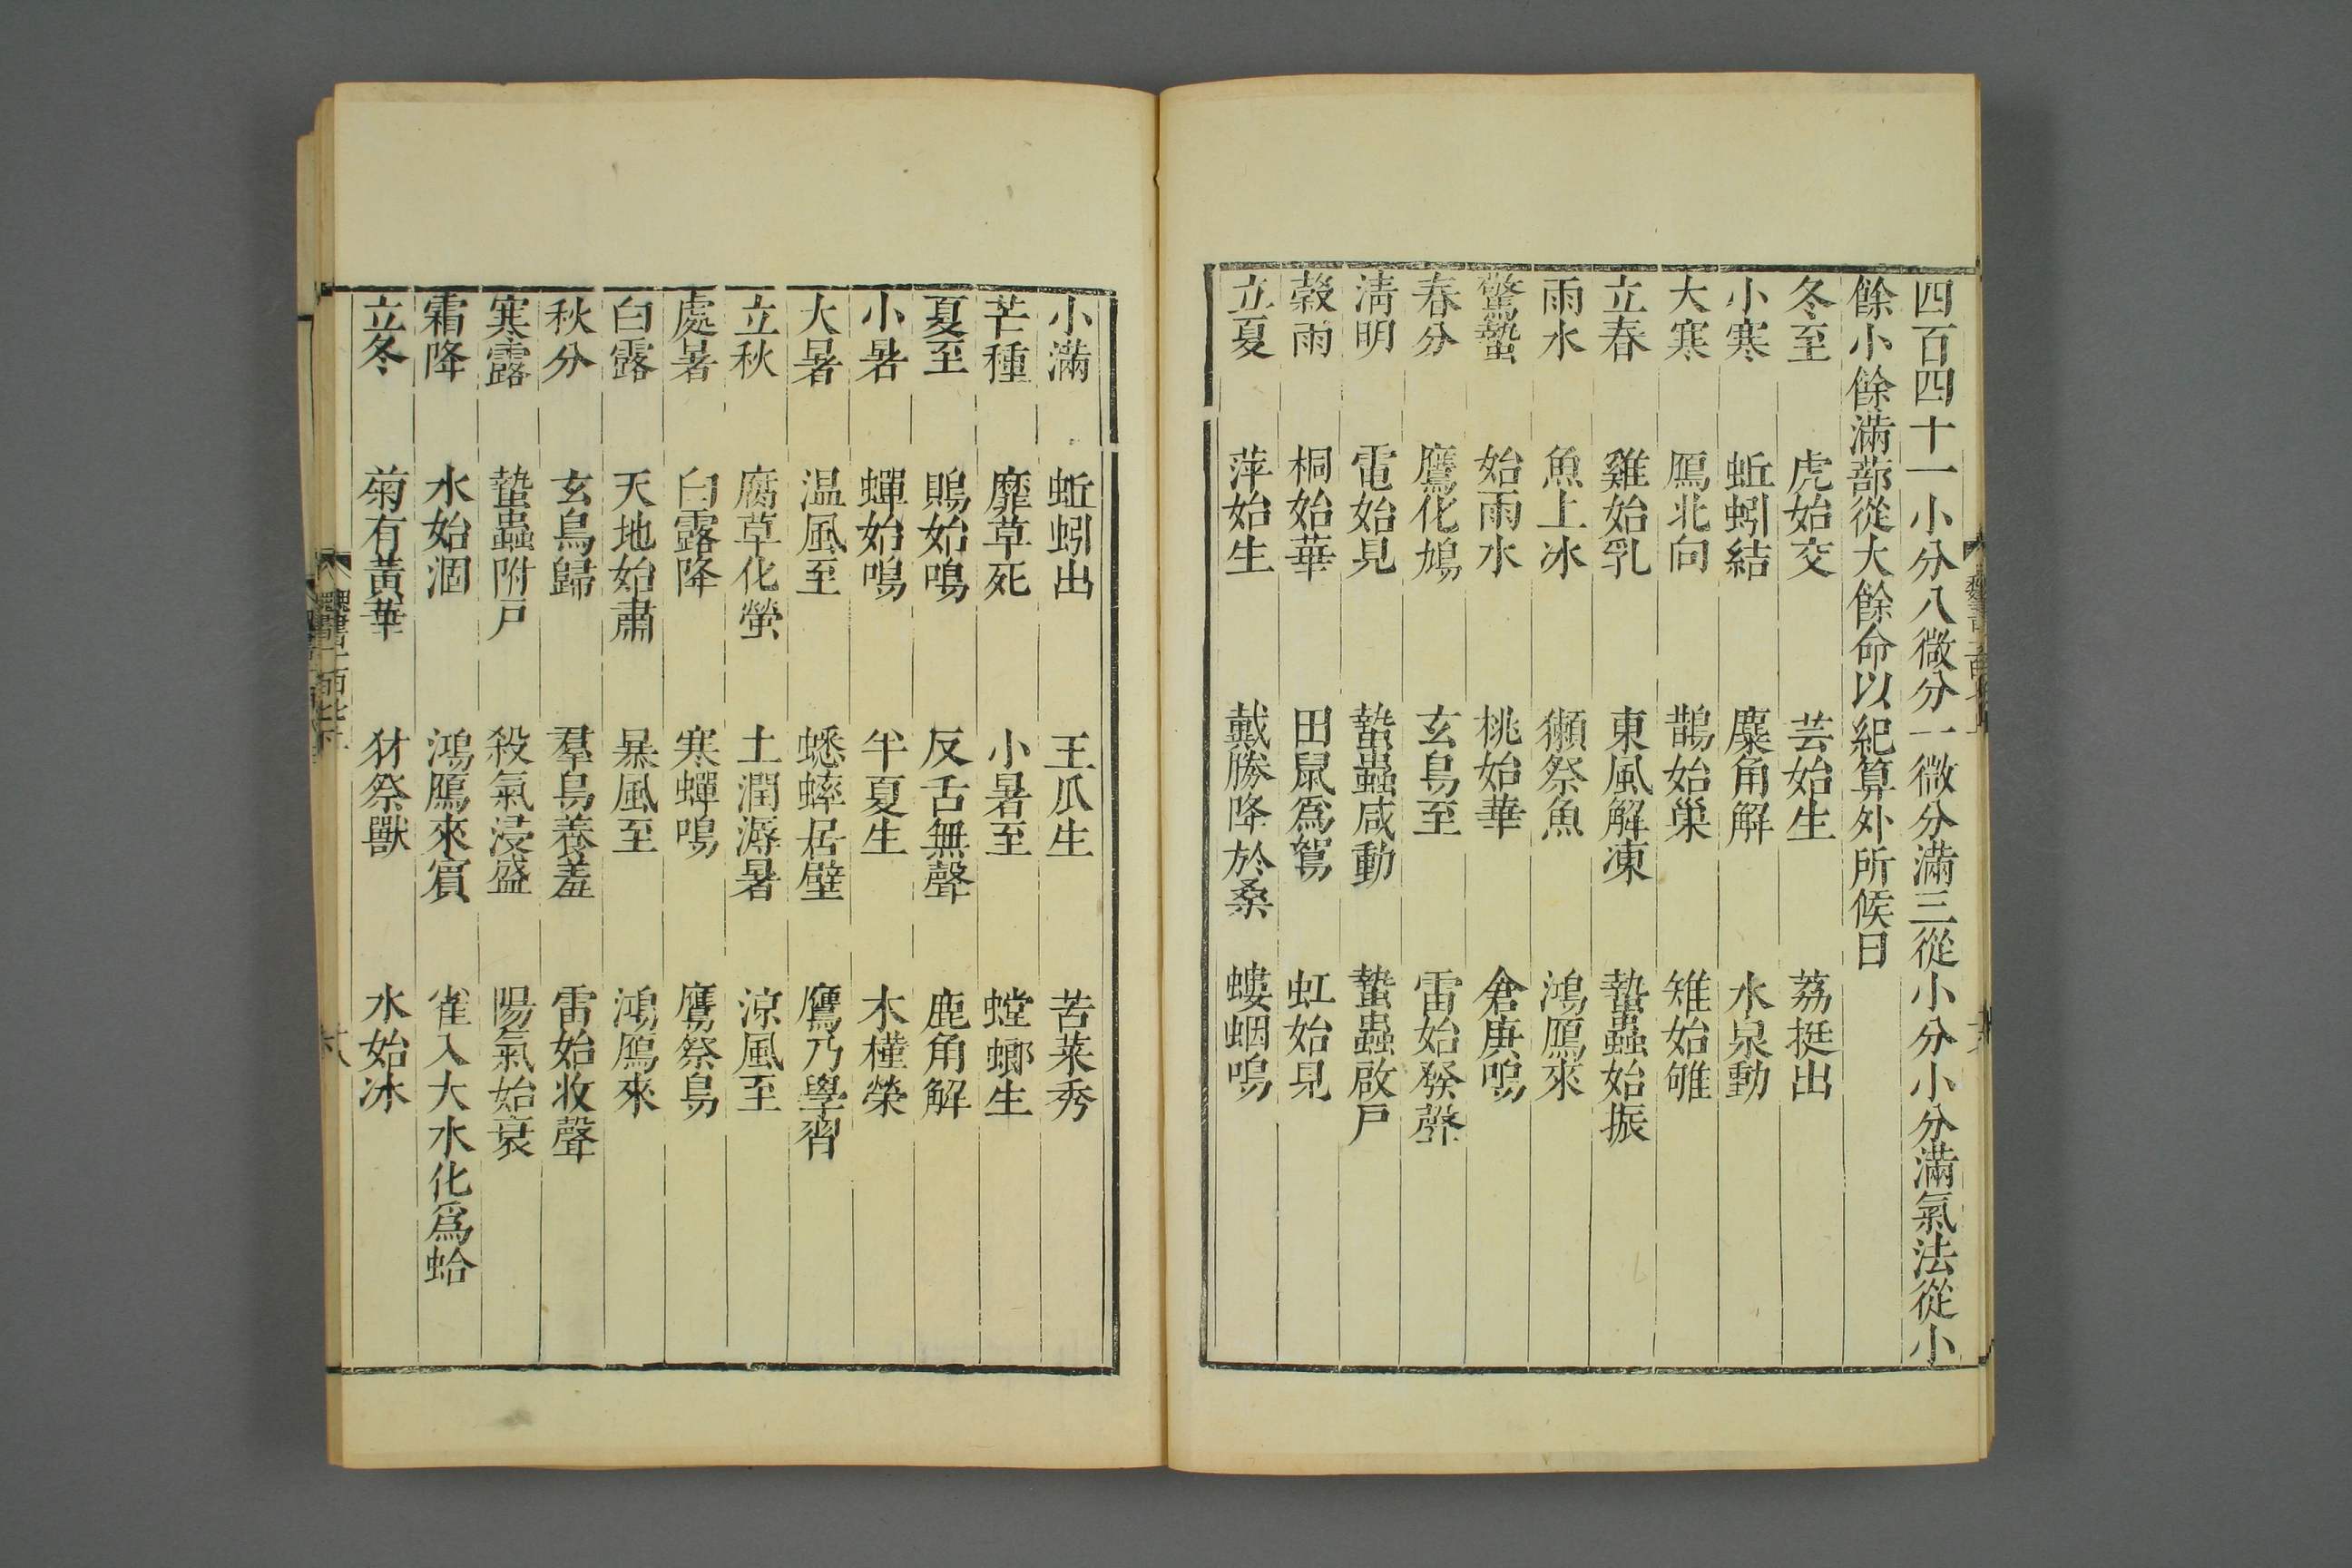 四百四十一小分八微分一微分滿三從小分小分滿氣法從小
餘小餘滿蔀從大餘命以紀算外所候日
冬至 虎始交 芸始生 荔挺出
小寒 蚯蚓結 麋角解 水泉動
大寒 鴈北向 鵲始巢 雉始雊
立春 雞始乳 東風解凍 蟄蟲始振
雨水 魚上冰 獺祭魚 鴻鴈來
驚蟄 始雨水 桃始華 倉庚鳴
春分 鷹化鳩 玄鳥至 雷始發聲
清明 電始見 蟄蟲咸動 蟄蟲啟戸
穀雨 桐始華 田鼠為鴽 虹始見
立夏 萍始生 戴勝降於桑 螻蟈鳴
小滿 蚯蚓出 王瓜生 苦菜秀
芒種 靡草死 小暑至 螳螂生
夏至 鵙始鳴 反舌無聲 鹿角解
小暑 蟬始鳴 半夏生 木槿榮
大暑 温風至 蟋蟀居壁 鷹乃學習
立秋 腐草化螢 土潤溽暑 涼風至
處暑 白露降 寒蟬鳴 鷹祭鳥
白露 天地始肅 暴風至 鴻鴈來
秋分 玄鳥歸 羣鳥養羞 雷始收聲
寒露 蟄蟲附戸 殺氣浸盛 陽氣始衰
霜降 水始涸 鴻鴈來賔 雀入大水化爲蛤
立冬 菊有黃華 豺祭獸 水始冰